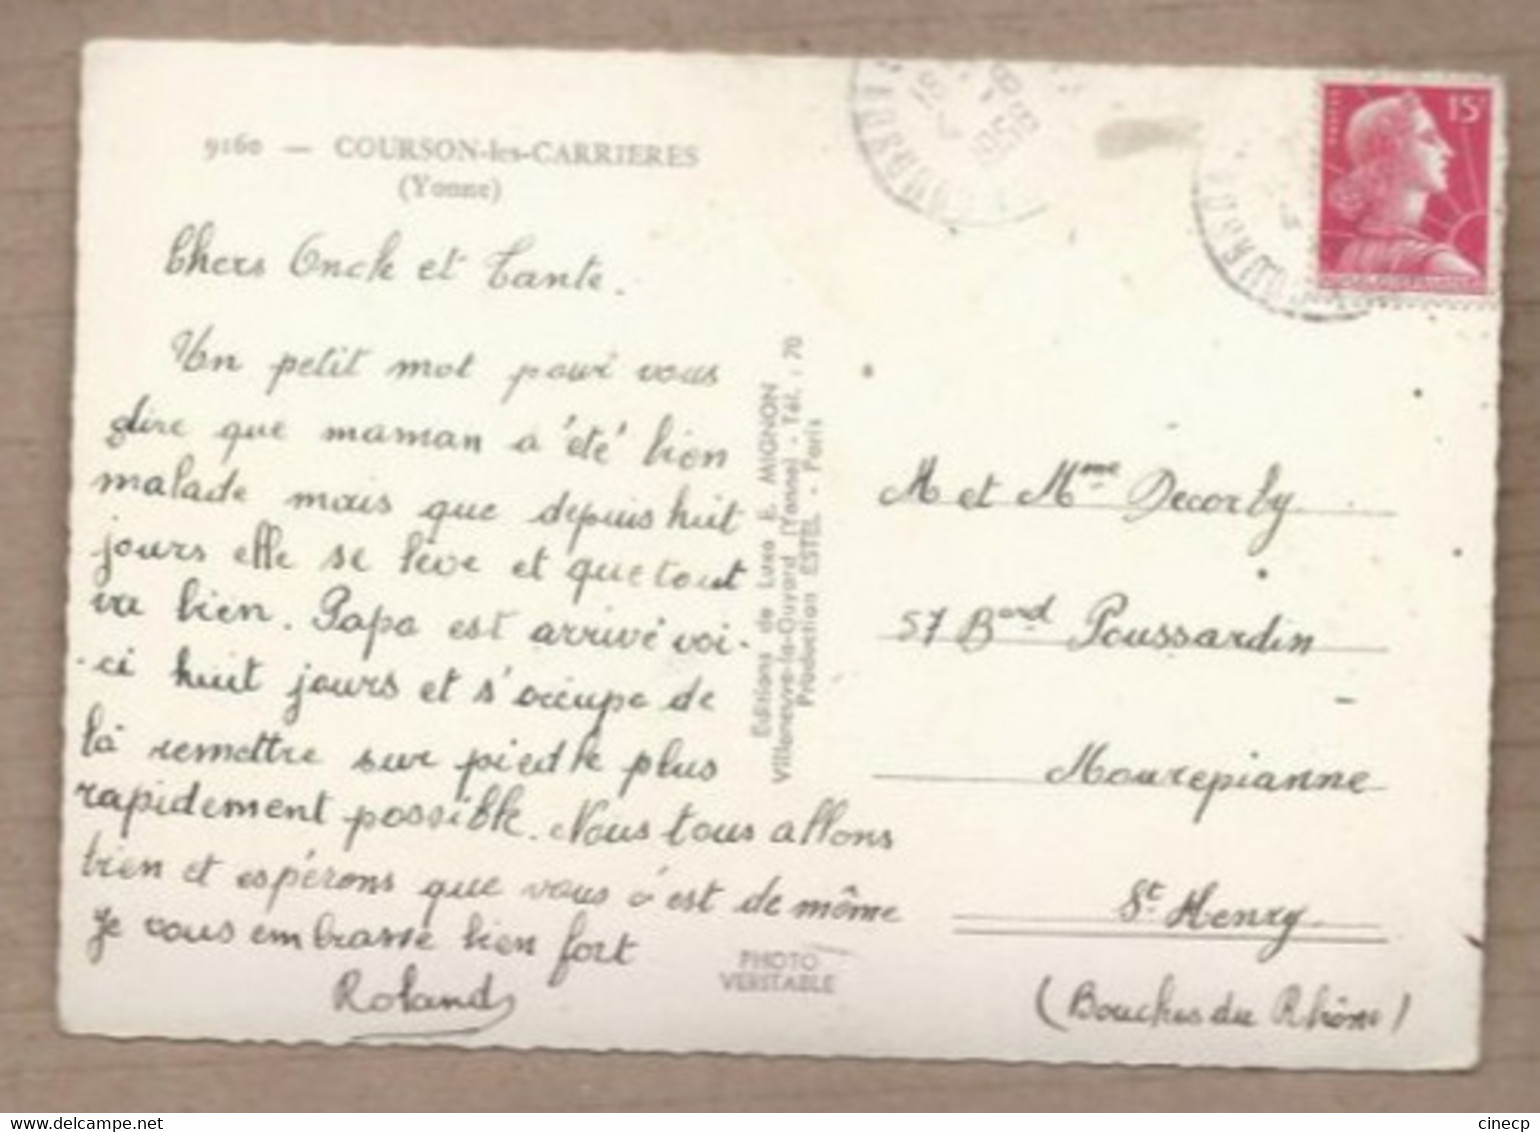 9160 — COURSON-les-CARRIERES
(Yonne)
Chers Oncle et Tante.
Un petit mot pour vous
dire que maman a été bien
malade mais que depuis huit
jours elle se lève et que tout
va bien. Papa est arrivé voi-
-ci huit jours et s'occupe de
la remettre sur pied le plus
rapidement possible. Nous tous allons
bien et espérons que vous c'est de même
Je vous embrasse bien fort
Roland
Editions de Luxe E. MIGNON
Villeneuve-la-Guyard (Yonne) - Tél. : 70
Production ESTEL - Paris
PHOTO
VERITABLE
15F
M et Mme Decorby
57 Bard Poussardin
Mourepianne
St. Henry
(Bouches du Rhône)
delcampe.net
cinecp